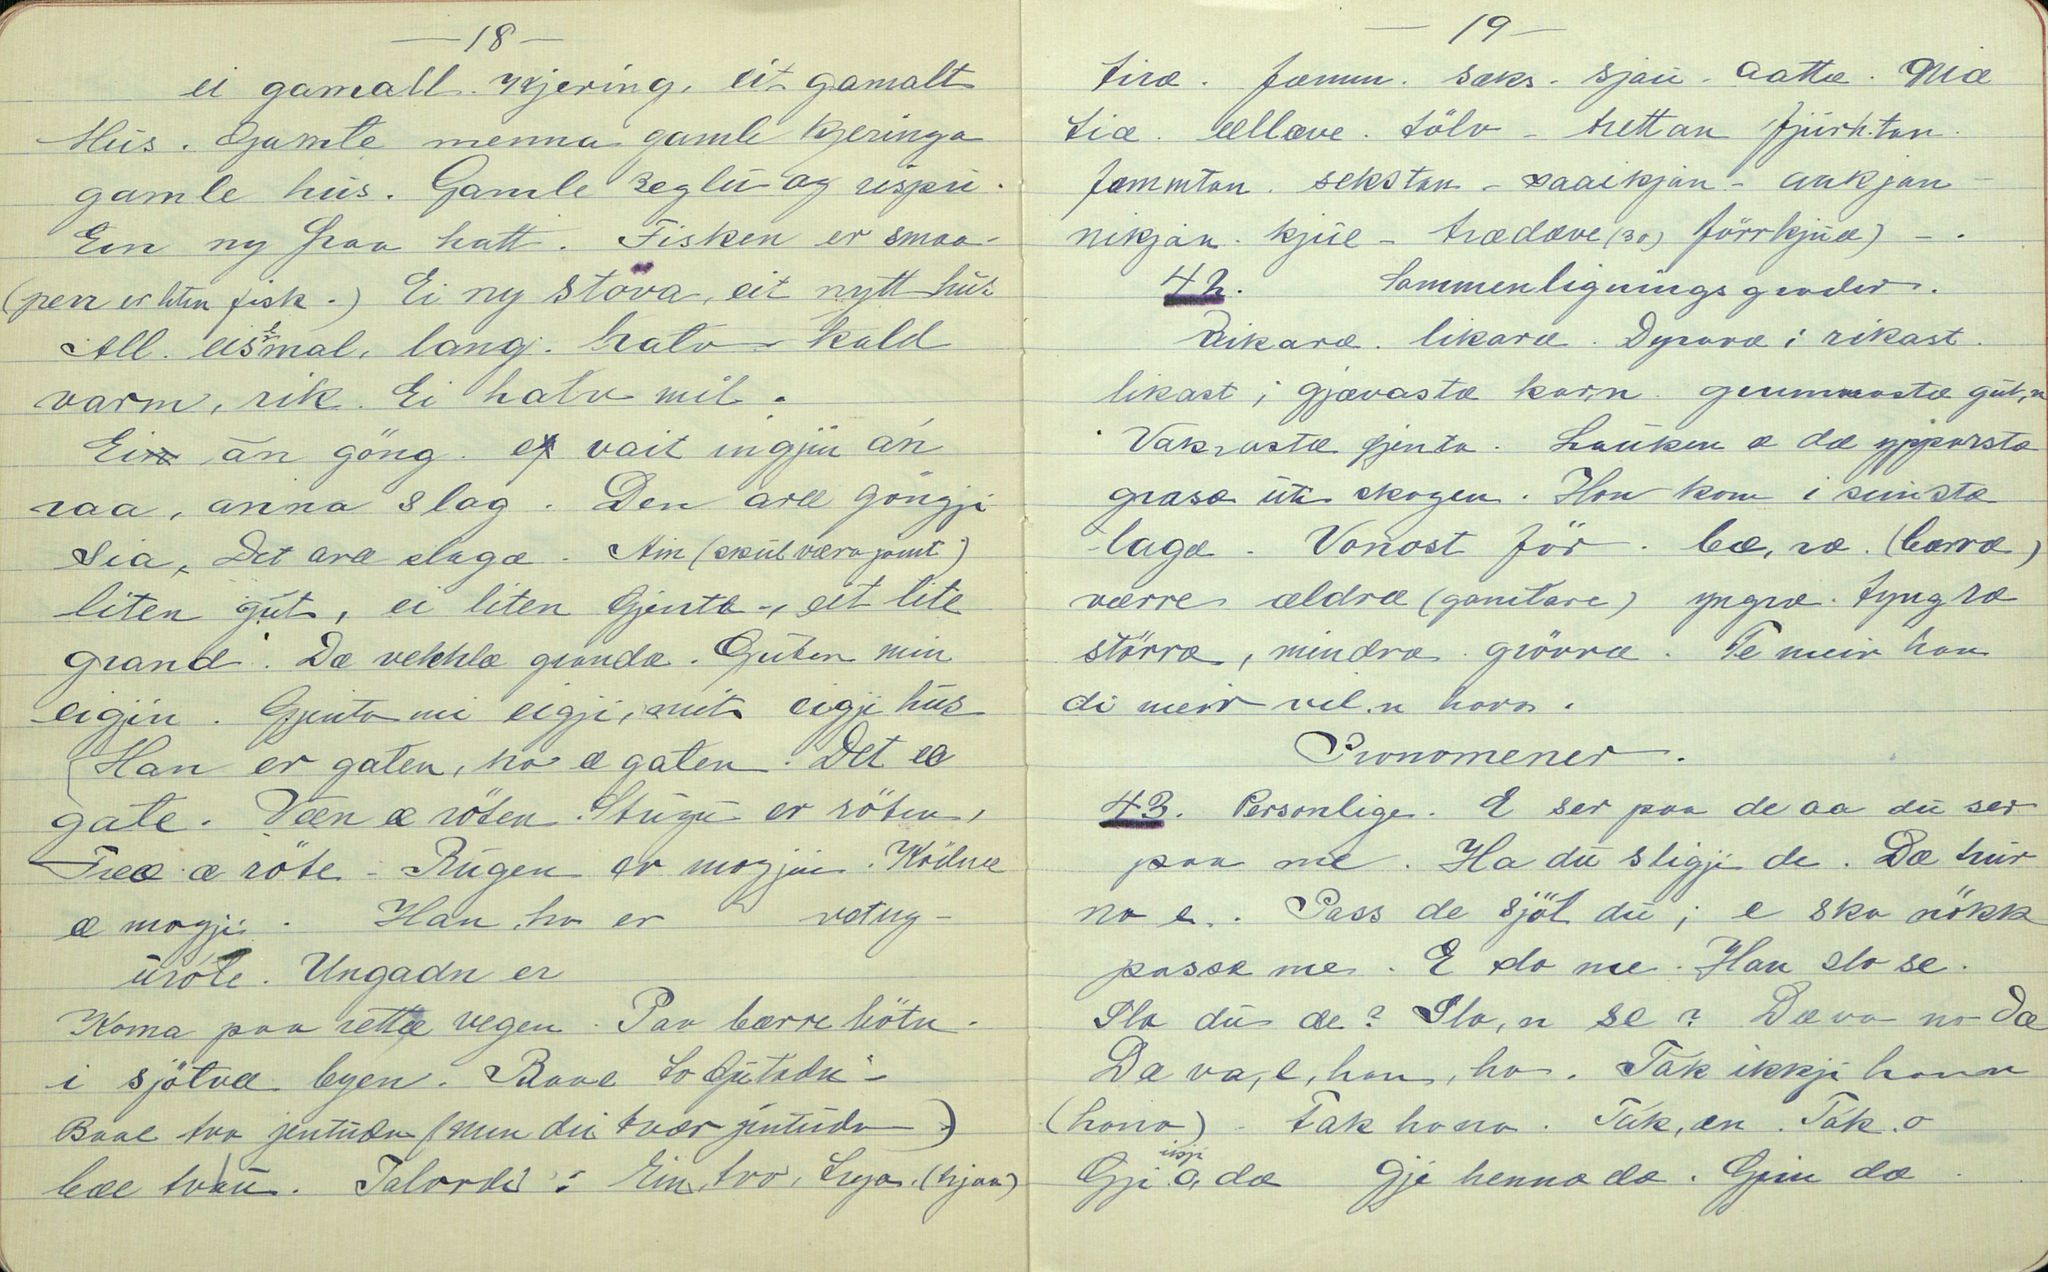 —18—
ei gamall kjering, eit gamalt
Hus. Gamle menna gamle kjeringa
gamle hus. Gamle reglu og rispu.
Ein ny fraa hatt. Fisken er smaa-
(pen er liten fisk.) Ei ny stova, eit nytt hus
All. eismal, lang. halv kald
varm, rik. Ei halv mil.
Ein án gŏng. ei vait ingjii án
raa, anna slag. Den aræ göngji
Sia, Det aræ slagæ. Ain (skul væra jamt)
liten gut, ei liten Gjenta, eit lite
grand. Dæ vekhlæ grandæ. Guten min
eigjin. Gjenta mi eigji, mit eigji hus
Han er gaten, ho æ gaten. Det æ
gate. Væn æ röten. Stugu er röten,
Treæ æ röte - Rugen er mogjin.Ködnæ
æ mogji. Han, ho er vatug-
uröte. Ungadn er
Koma paa rettæ vegen. Paa bærre bötn.
i sjölvæ byen. Baae to Gutadn -
Baae tvo jentudn (men dii tvær jentudn)
bæe tvau. Talord: Ein, tvo, trya, (hjaa)
—19—
firæ. fæmm. sæks. sjau. aattæ. niæ
tiæ. ællæve. tölv - trettan fjurhtan.
fæmmtan. sekstan - saaikjan - aakjan -
nikjan. kjue - trædæve (30) förrkjuæ) - .
42. Sammenligningsgrader.
Rikaræ. likaræ. Dyraræ; rikast.
likast; gjævastæ korn. grummastæ gut,n
Vakrastæ Gjenta. Lauken æ dæypparsta
grasæ uti skogen. Han kom i sunstæ
lagæ. Vonost för. bæ,ræ. (bærræ)
værre ældræ (gamlare) yngræ. tyngræ
större, mindræ. grövræ. Te meir han
di meir vil,n hava.
Pronomener.
43. Personlige. E ser paa de aa du ser
paa me. Ha du sligji de. Dæ hur
no e. Pass de sjöl du; e ska nökk
passa me. E slo me. Han slo se.
Slo du dæ? Slo,n se? Dæ va no dæ
Dæ va, e, han, ho. Tak ikkji honn
(hono). Tak hona. Tak,æn. Tak o
Gji o, dæ Gji henna dæ. Gjin dæ